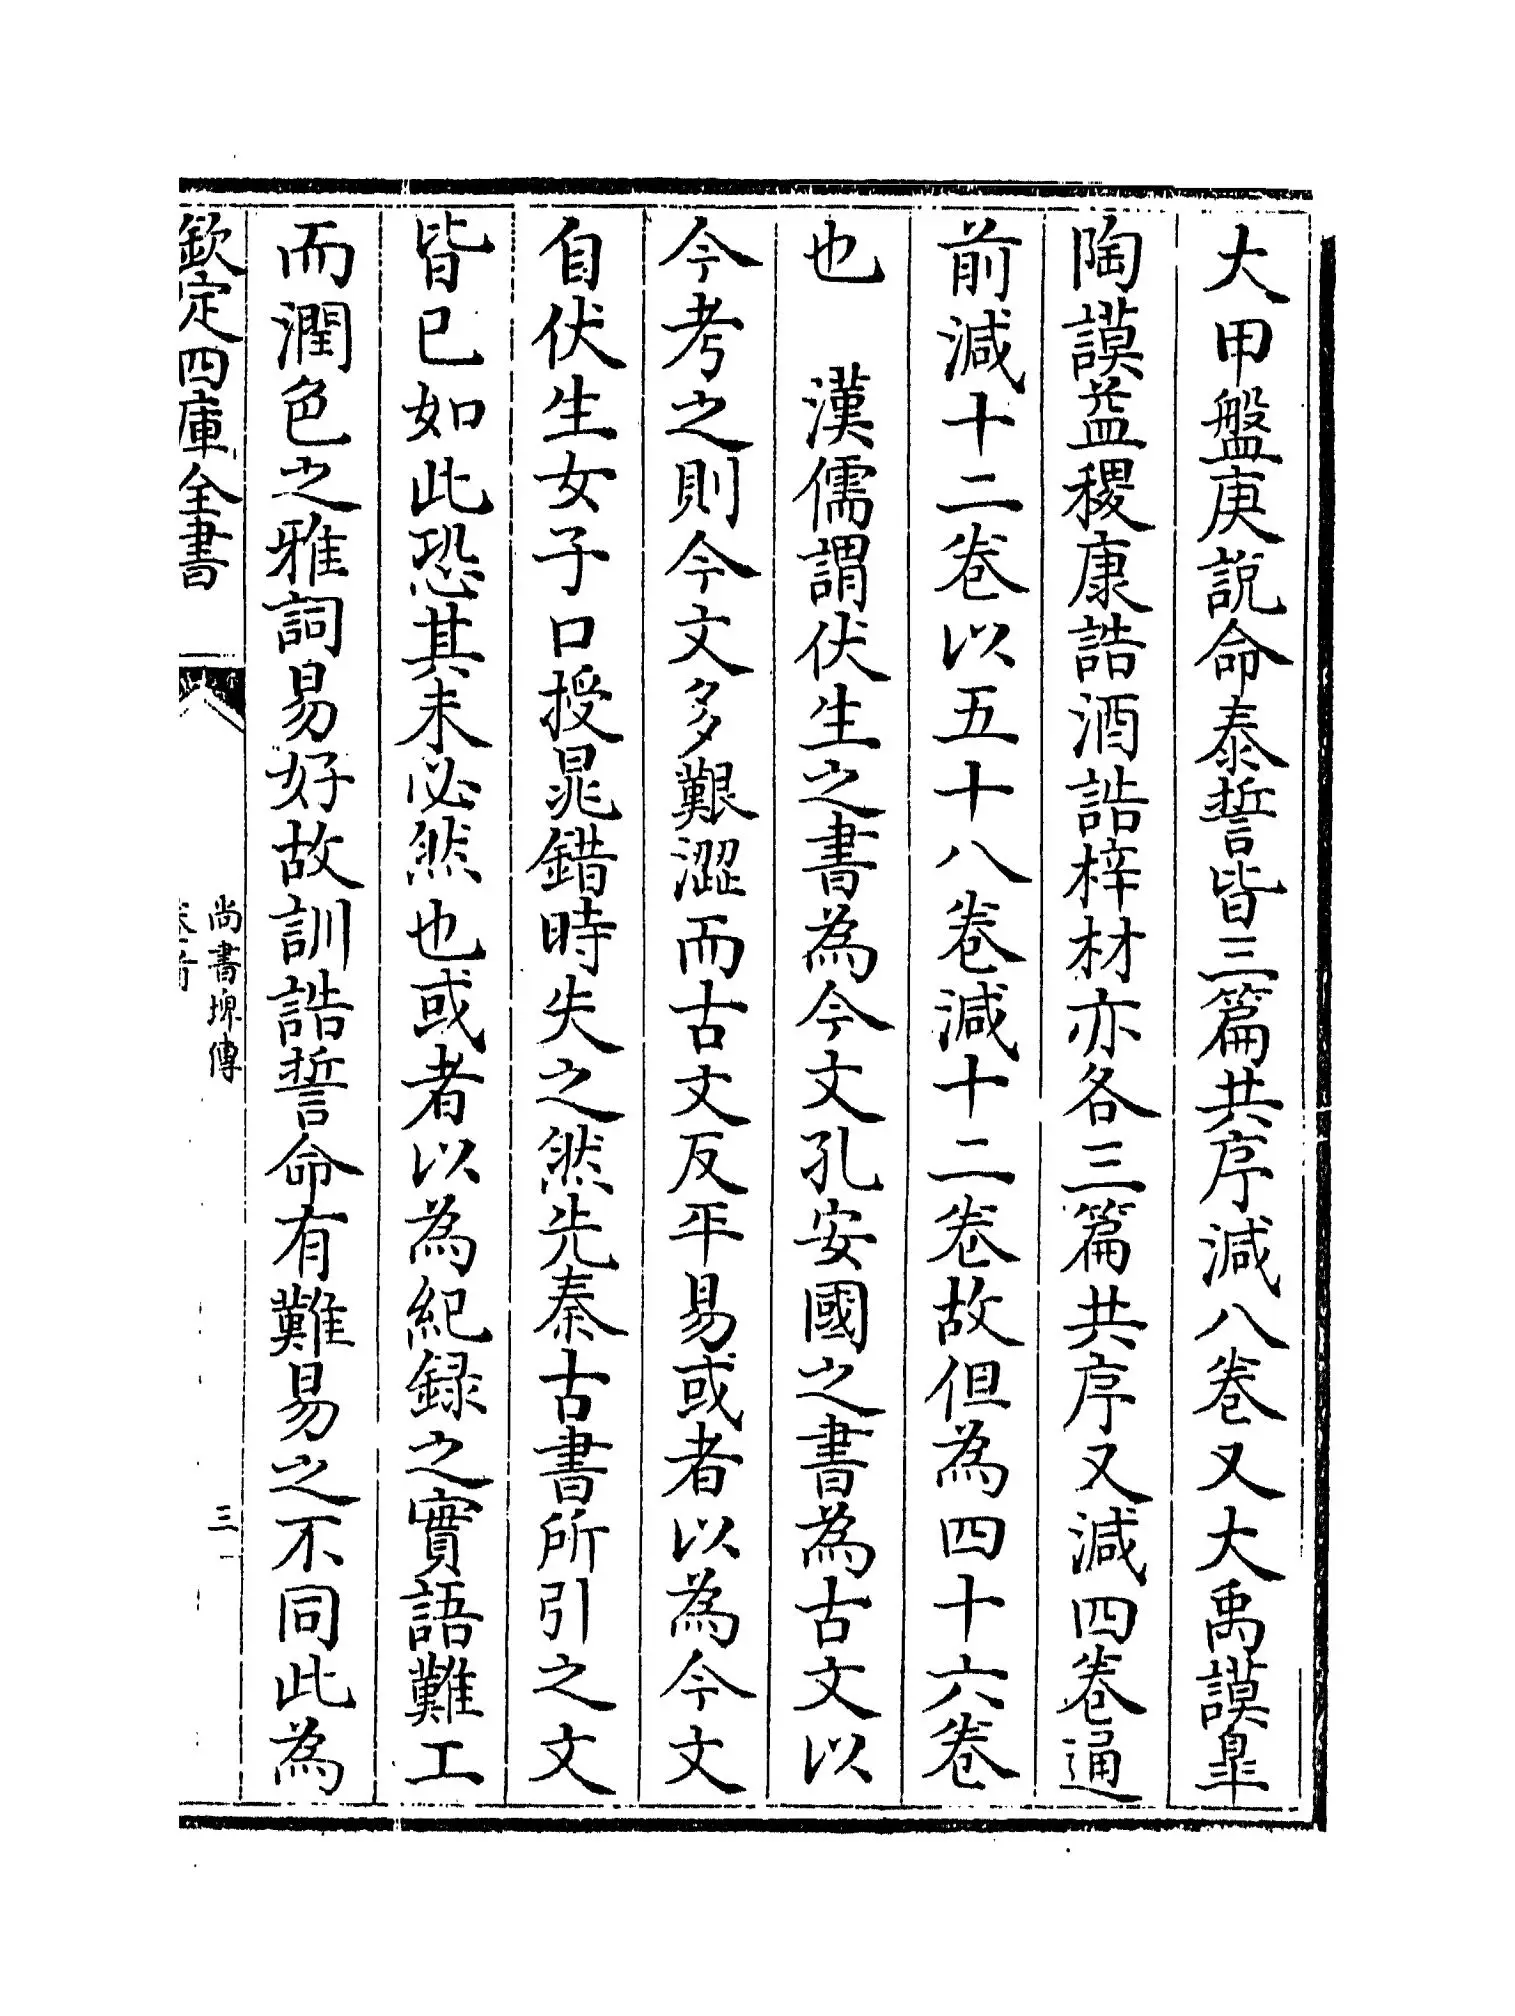 大甲盤庚說命泰誓皆三篇共序減八卷又大禹謨皐
陶謨益稷康誥酒誥梓材亦各三篇共序又減四卷通
前減十二卷以五十八卷減十二卷故但為四十六卷
也　漢儒謂伏生之書為今文孔安國之書為古文以
今考之則今文多艱澀而古文反平易或者以為今文
自伏生女子口授晁錯時失之然先秦古書所引之文
皆已如此恐其未必然也或者以為紀錄之實語難工
而潤色之雅詞易好故訓誥誓命有難易之不同此為
欽定四庫全書
尚書埤傳
卷首
三